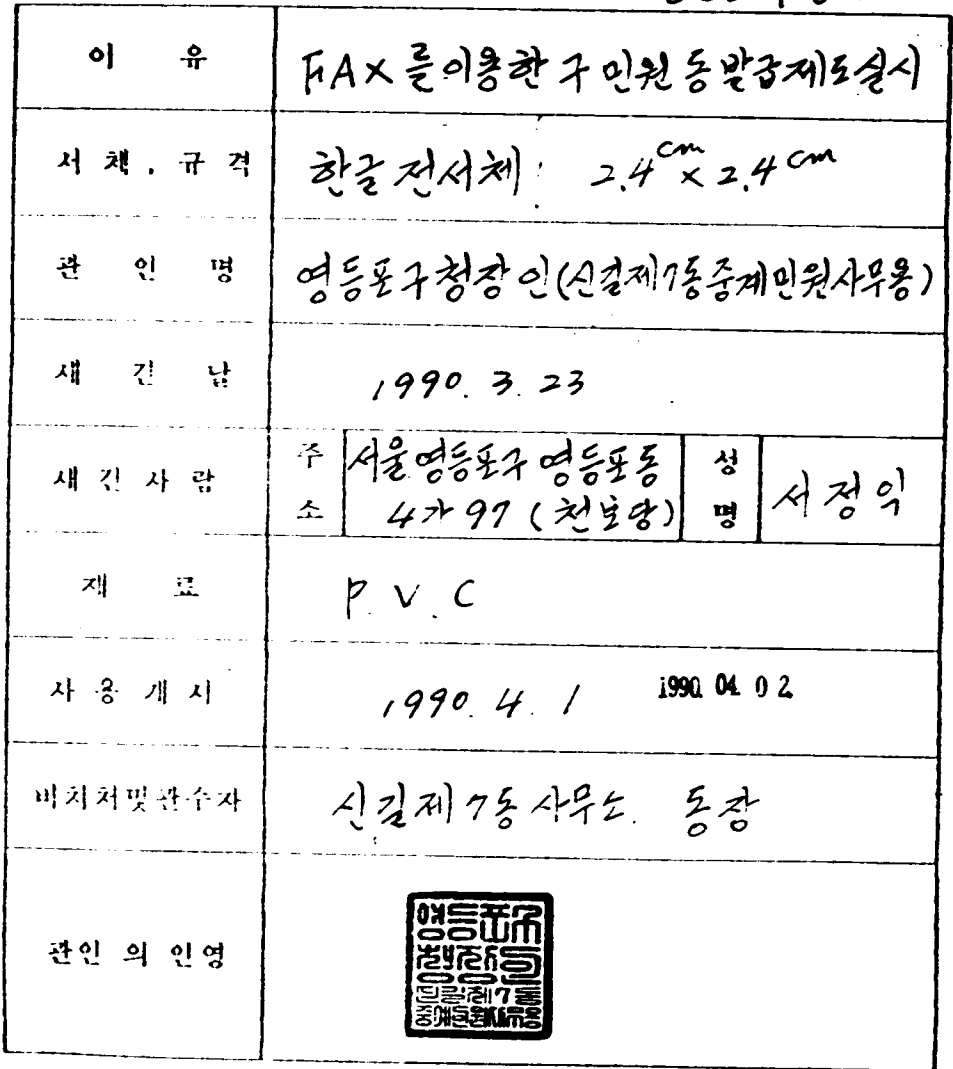 이 유 FAX를이용한구민원동발급제도실시
서체. 규격 한글전서체: 2.4cm x 2.4cm
관 인 명 영등포구청장인(신길제7동중계민원사무용)
새 긴 날 1990. 3. 23
새 긴 사 람 주소 서울영등포구 영등포동 4가 97 (천보당) 성명 서정익
재 료 P. V. C
사 용 개 시 1990. 4. 1 1990. 04. 0 2.
비치처및관수자 신길제7동사무소. 동장
관인 의 인영
영등포구
청장인
신길제7동
중계민원사무용